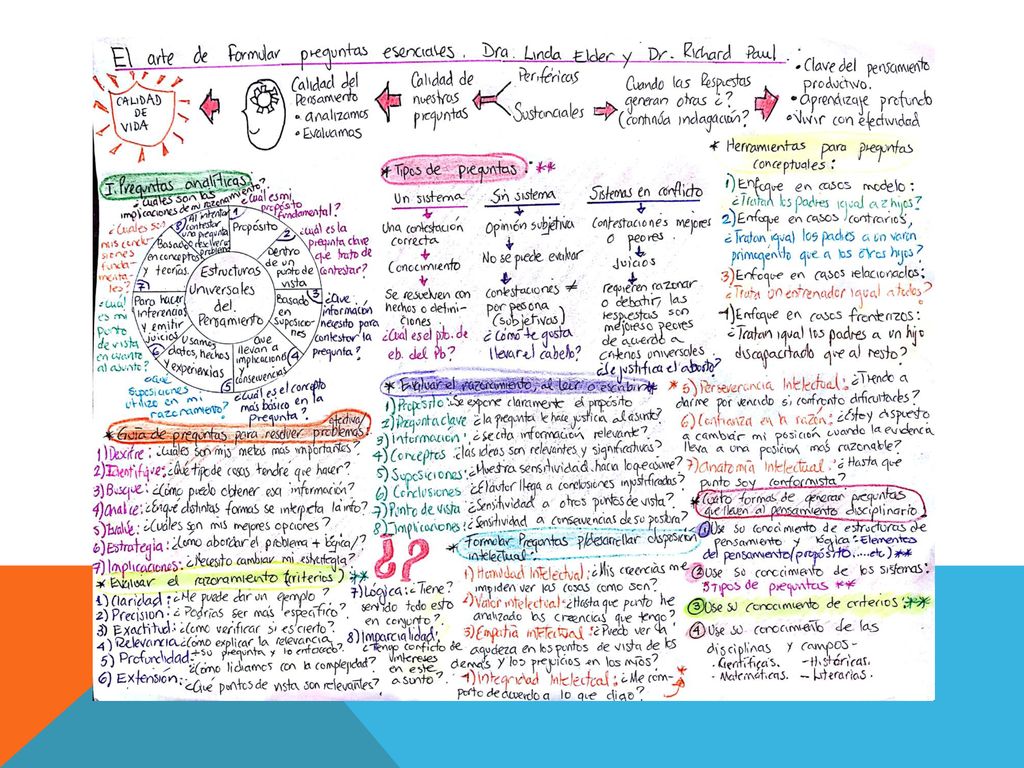 El arte de formular preguntas esenciales. Dra. Linda Elder y Dr. Richard Paul
CALIDAD
DE
VIDA
Calidad del
Pensamiento
• analizamos
• Evaluamos
Calidad de
nuestras
preguntas
Periféricas
Sustanciales
Cuando las Respuestas
generan otras ¿?
(continúa indagación?
• Clave del pensamiento
productivo.
• Aprendizaje profundo
• Vivir con efectividad
I. Preguntas analíticas
¿Cuáles son las
implicaciones de mi razonamiento?
¿Cuál es mi
propósito
fundamental?
¿Cuál es la
pregunta clave
que trato de
contestar?
¿Que
información
necesito para
contestar la
pregunta?
¿Cuál es el concepto
más básico en la
Pregunta?
¿Qué
suposiciones
utilizo en mi
razonamiento?
¿Cuál
es mi
punto
de vista
en cuanto
al asunto?
¿Cuales son
mis conclu-
siones
funda-
menta-
les?
Estructuras
Universales
del
Pensamiento
1
Propósito
2
Dentro
de un
punto de
vista
Basado 3
en
suposicio-
nes
que
llevan a
implicaciones
y consecuencias
4
5
Usamos
datos, hechos
y experiencias
6
Para hacer
inferencias
y emitir
juicios
7
Basado
en conceptos
y teorías
8 Al intentar
contestar
una pregunta
o resolver un
problema
* Tipos de preguntas: **
Un sistema
Una contestación
correcta
Conocimiento
Se resuelven con
hechos o defini-
ciones
¿Cual es el pto. de
eb. del Pb?
Sin sistema
Opinión subjetiva
No se puede evaluar
contestaciones ≠
por persona
(subjetivas)
¿Cómo te gusta
llevar el cabello?
Sistemas en conflicto
Contestaciones mejores
o peores.
Juicios
requieren razonar
o debatir, las
respuestas son
mejores o peores
de acuerdo a
criterios universales
¿Se justifica el aborto?
* Herramientas para preguntas
conceptuales:
1) Enfoque en casos modelo:
¿Tratan los padres igual a 2 hijos?
2) Enfoque en casos contrarios,
¿Tratan igual los padres a un varón
primogenito que a los otros hijos?
3) Enfoque en casos relacionados:
¿Trata un entrenador igual a todos?
4) Enfoque en casos fronterizos:
¿Tratan igual los padres a un hijo
discapacitado que al resto?
* Evaluar el razonamiento, al leer o escribir *
1) Propósito: ¿Se expone claramente el propósito
2) Pregunta clave ¿la pregunta le hace justicia al asunto?
3) Información: ¿Se cita información relevante?
4) Conceptos ¿las ideas son relevantes y significativas?
5) Suposiciones: ¿Muestra sensitividad hacia lo que asume?
6) Conclusiones ¿El autor llega a conclusiones justificadas?
7) Punto de vista ¿Sensitividad a otros puntos de vista?
8) Implicaciones: ¿Sensitividad a consecuencias de su postura?
* Guía de preguntas para resolver problemas:
efectiva/
1) Descifre: ¿Cuales son mis metas mas importantes?
2) Identifique: ¿Qué tipo de cosas tendré que hacer?
3) Busque: ¿Cómo puedo obtener esa información?
4) Analice: ¿En que distintas formas se interpreta la info?
5) Evalúe: ¿Cuáles son mis mejores opciones?
6) Estrategia: ¿Como abordar el problema + lógica/?
7) Implicaciones: ¿Necesito cambiar mi estrategia?
* Evaluar el razonamiento (criterios) **
1) Claridad: ¿Me puede dar un ejemplo?
2) Precisión: ¿Podrías ser más específico?
3) Exactitud: ¿Como verificar si es cierto?
4) Relevancia ¿Cómo explicar la relevancia
+ su pregunta y lo enfocado?
5) Profundidad: ¿Cómo lidiamos con la complejidad?
6) Extensión: ¿Qué puntos de vista son relevantes?
7) Lógica: ¿Tiene
sentido todo esto
en conjunto?
8) Imparcialidad,
¿Tengo conflicto de
intereses
en este
asunto?
¿?
* Formular Preguntas p/desarrollar disposición
intelectual:
1) Humildad Intelectual: ¿Mis creencias me
impiden ver las cosas como son?
2) Valor intelectual: ¿Hasta que punto he
analizado las creencias que tengo?
3) Empatía Intelectual: ¿Puedo ver la
agudeza en los puntos de vista de los
demás y los prejuicios en los míos?
4) Integridad Intelectual: ¿Me com-
porto de acuerdo a lo que digo?
* 5) Perseverancia Intelectual: ¿Tiendo a
darme por vencido si confronto dificultades?
6) Confianza en la razón: ¿Estoy dispuesto
a cambiar mi posición cuando la evidencia
lleva a una posición más razonable?
7) Anatomía Intelectual: ¿Hasta que
punto soy conformista?
* Cuatro formas de generar preguntas
que lleven al pensamiento disciplinario.
① Use su conocimiento de estructuras de
pensamiento y lógica: Elementos
del pensamiento (propósito.....etc) **
② Use su conocimiento de los sistemas:
3 tipos de preguntas **
③ Use su conocimiento de criterios: **
④ Use su conocimiento de las
disciplinas y campos-
- Científicas. - Históricas.
- Matemáticas. - Literarias.